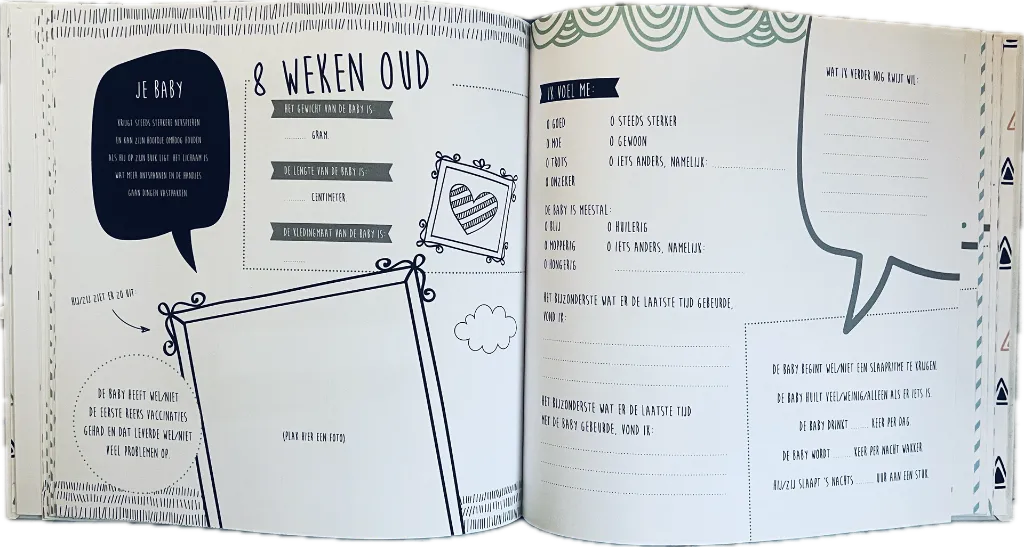 8 WEKEN OUD
JE BABY
KRIJGT STEEDS STERKERE NEKSPIEREN
EN KAN ZIJN HOOFDJE OMHOOG HOUDEN
ALS HIJ OP ZIJN BUIK LIGT. HET LICHAAM IS
WAT MEER ONTSPANNEN EN DE HANDJES
GAAN DINGEN VASTPAKKEN.
HET GEWICHT VAN DE BABY IS:
GRAM.
DE LENGTE VAN DE BABY IS:
CENTIMETER
DE KLEDINGMAAT VAN DE BABY IS:
HIJ/ZIJ ZIET ER ZO UIT:
DE BABY HEEFT WEL/NIET
DE EERSTE REEKS VACCINATIES
GEHAD EN DAT LEVERDE WEL/NIET
VEEL PROBLEMEN OP.
(PLAK HIER EEN FOTO)
IK VOEL ME:
O GOED
O MOE
O TROTS
O ONZEKER
O STEEDS STERKER
O GEWOON
O IETS ANDERS, NAMELIJK:
DE BABY IS MEESTAL:
O BLIJ
O MOPPERIG
O HONGERIG
O HUILERIG
O IETS ANDERS, NAMELIJK:
HET BIJZONDERSTE WAT ER DE LAATSTE TIJD GEBEURDE,
VOND IK:
HET BIJZONDERSTE WAT ER DE LAATSTE TIJD
MET DE BABY GEBEURDE, VOND IK:
WAT IK VERDER NOG KWIJT WIL:
DE BABY BEGINT WEL/NIET EEN SLAAPRITME TE KRIJGEN.
DE BABY HUILT VEEL/WEINIG/ALLEEN ALS ER IETS IS.
DE BABY DRINKT ........ KEER PER DAG.
DE BABY WORDT ........ KEER PER NACHT WAKKER.
HIJ/ZIJ SLAAPT 'S NACHTS ........ UUR AAN EEN STUK.